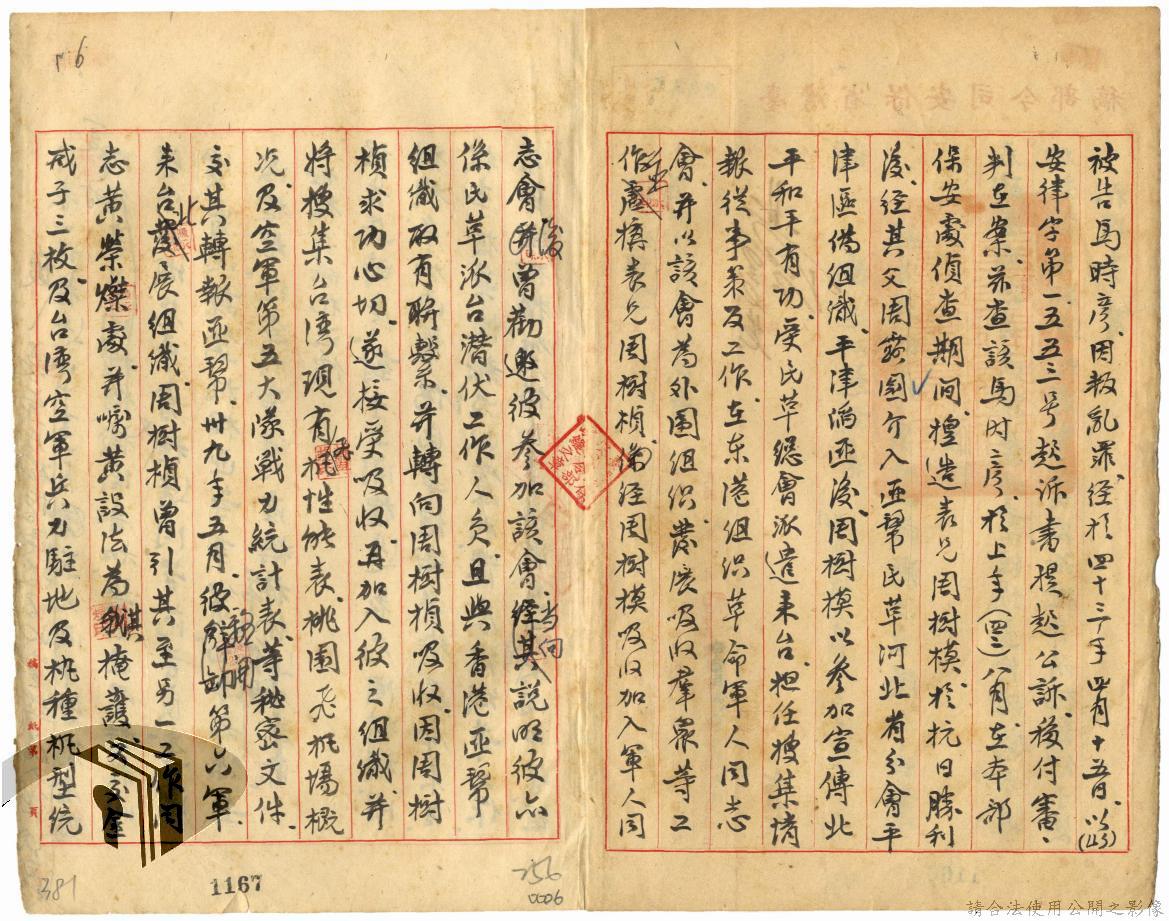 稿部令司安保省灣臺
被告馬時彥因叛亂罪經於四十三年四月十五日以(43)
安律字第一五五三号起訴書提起公訴移付審
判在案茲查該馬时彥於上年(四二)八月在本部
保安處偵查期間捏造表兄周樹模於抗日勝利
後經其父周蔚園介入匪幫民革河北省分會平
津區偽組織平津淪匪後周樹模以參加宣傳北
平和平有功受民革總會派遣来台担任搜集情
報從事策反工作在东港组织革命軍人同志
會并以該會為外圍組织發展吸收羣众等工
作處捏表兄周樹楨偽經周樹模吸收加入軍人同
志會後並曾勸邀彼參加該會當向其說明彼亦
係民革派台潛伏工作人員且與香港匪幫
組織取有聯繫并轉向周樹楨吸收因周樹
楨求功心切遂接受吸收再加入彼之組織并
將搜集台湾現有飛机性能表桃園飛机場概
况及空軍第五大隊戰力統計表等秘密文件
交其轉報匪幫卅九年五月彼解第六軍
来台北發展組織周樹楨曾引其至另一工作同
志黄榮燦處并囑黄設法為其掩護又交金
戒子三枚及台湾空軍兵力駐地及机種机型统
稿紙第 頁
1167
256
0006
381
6
請合法使用公開之影像